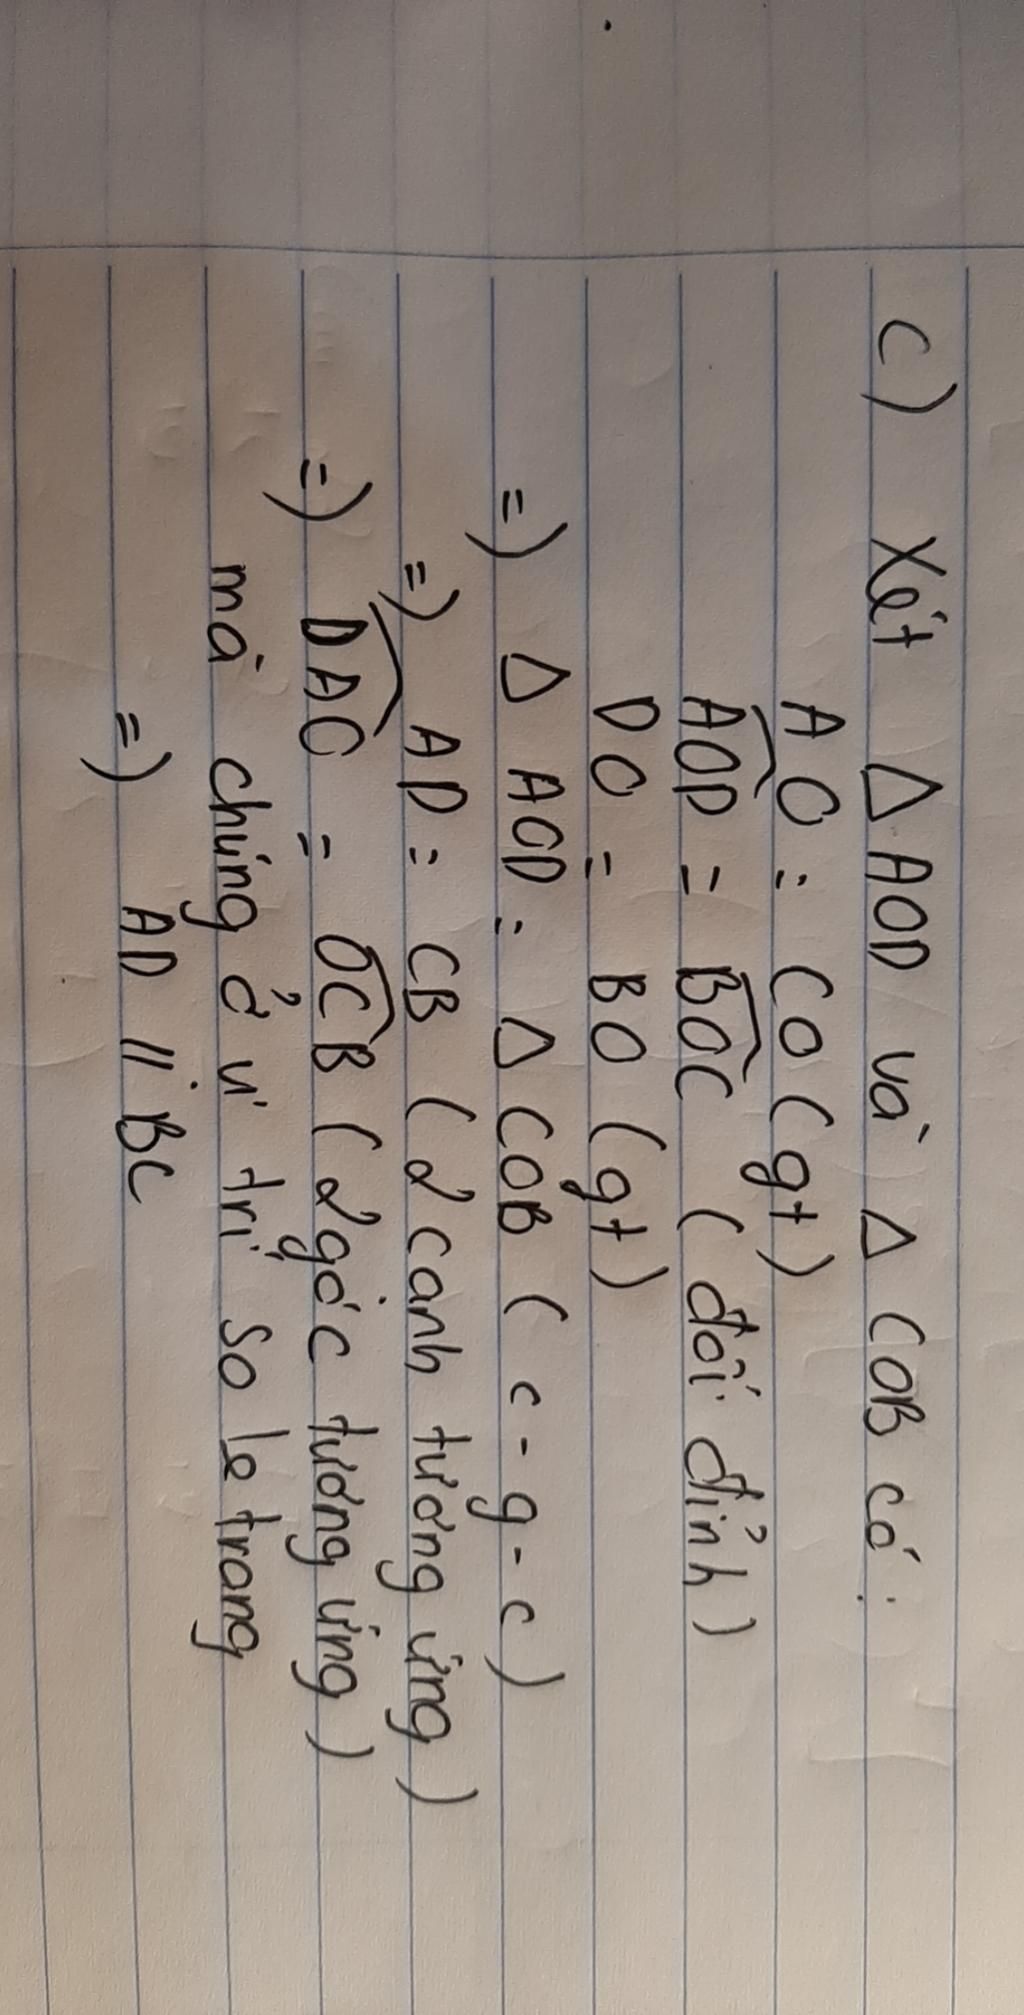 c) Xét △ AOD và △ COB có:
AO = CO (gt)
AOD = BOC (đối đỉnh)
DO = BO (gt)
=) △ AOD = △ COB ( c - g - c )
=) AD = CB ( 2 cạnh tương ứng )
=) DAO = OCB ( 2 góc tương ứng )
mà chúng ở vị trí so le trong
=) AD // BC